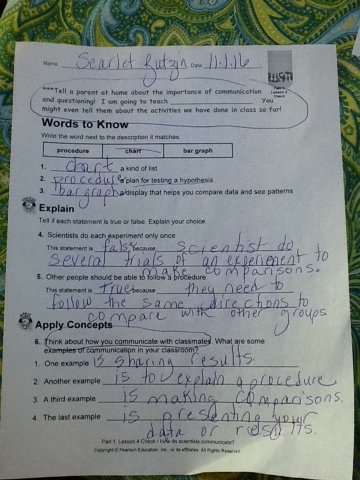 Name Scarlet Date 11.1.16
Lesson 4
Check
***Tell a parent at home about the importance of communication
and questioning! I am going to teach You
might even tell them about the activities we have done in class so far!
Words to Know
Write the word next to the description it matches.
procedure chart bar graph
1. chart a kind of list
2. procedure a plan for testing a hypothesis
3. bar graph a display that helps you compare data and see patterns
Explain
Tell if each statement is true or false. Explain your choice.
4. Scientists do each experiment only once
This statement is false because scientist do
several trials of an experiment to
make comparisons.
5. Other people should be able to follow a procedure.
This statement is True because they need to
follow the same directions to
compare with other groups
Apply Concepts
6. Think about how you communicate with classmates. What are some
examples of communication in your classroom?
1. One example is sharing results.
2. Another example is to explain a procedure
3. A third example is making comparisons.
4. The last example is presenting your
data or results.
Part 1. Lesson 4 Check • How do scientists communicate?
Copyright © Pearson Education, Inc., or its affiliates. All Rights Reserved.